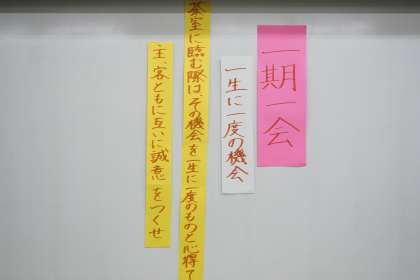 一期一会
一生に一度の機会
茶室に臨む際は、その機会を一生に一度のものと心得て
主、客ともに互いに誠意をつくせ